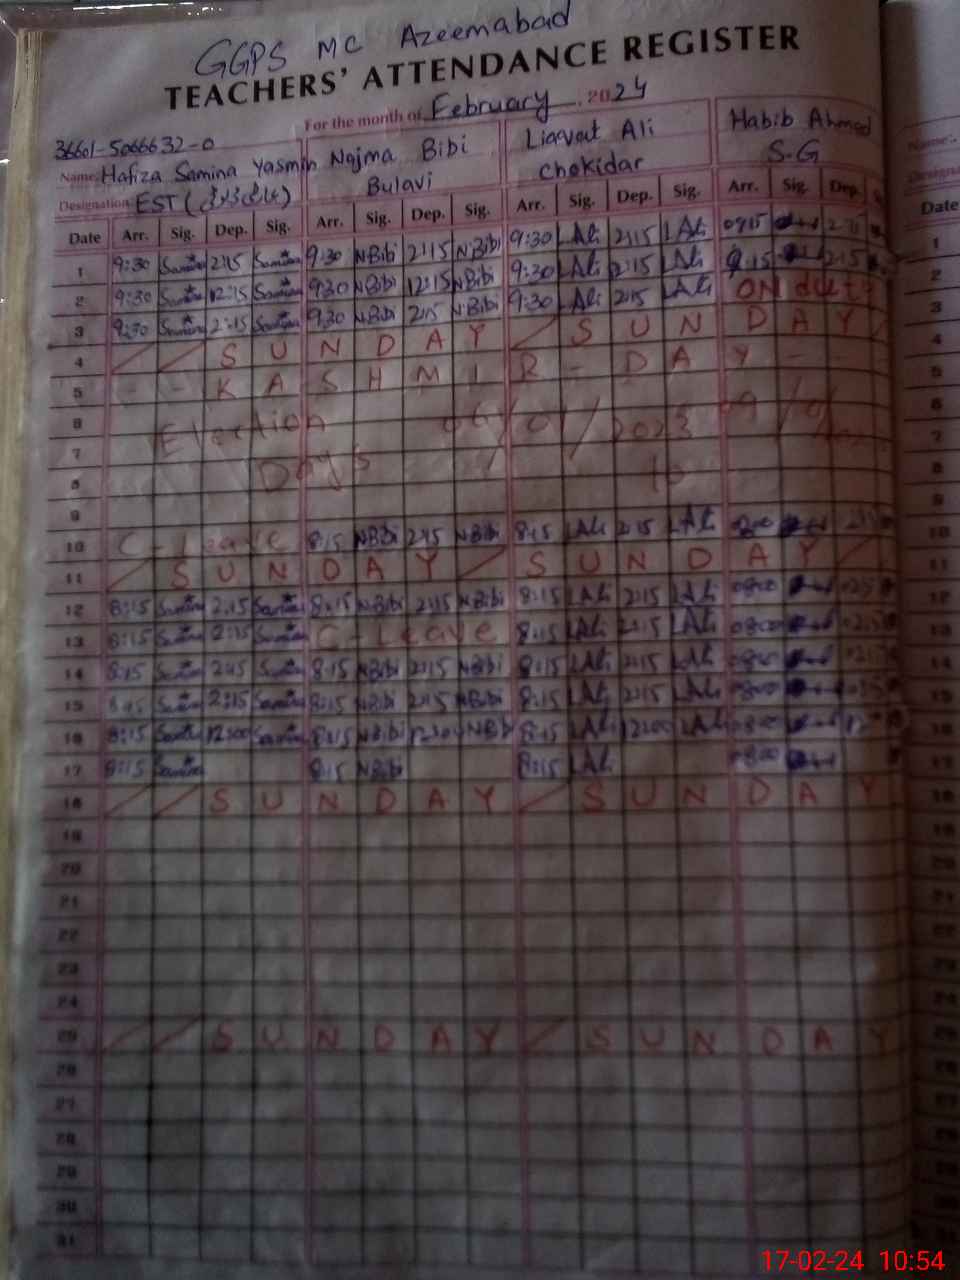 GGPS MC Azeemabad
TEACHERS' ATTENDANCE REGISTER
For the month of February 2024
36601-5066632-0
Name: Hafiza Samina Yasmin Najma Bibi Liaqat Ali Habib Ahmed
Designation EST Bulavi chokidar S-G
Date Arr. Sig. Dep. Sig. Arr. Sig. Dep. Sig. Arr. Sig. Dep. Sig. Arr. Sig. Dep.
1 9:30 Samina 2:15 Samina 9:30 NBibi 2:15 NBibi 9:30 LAli 2:15 LAli 0915
2 9:30 Samina 12:15 Samina 930 NBibi 12:15 NBibi 9:30 LAli 12:15 LAli 9:15 2:15
3 9:30 Samina 2:15 Samina 930 NBibi 2:15 NBibi 9:30 LAli 2:15 LAli ON duty
4 S U N D A Y S U N D A Y
5 - - K A S H M I R - D A Y -
6 Election
7 2023
8 Days
9
10 C-Leave 8:15 NBibi 2:15 NBibi 8:15 LAli 2:15 LAli
11 S U N D A Y S U N D A Y
12 8:15 Samina 2:15 Samina 8:15 NBibi 2:15 NBibi 8:15 LAli 2:15 LAli 0800
13 8:15 Samina 2:15 Samina C-Leave 8:15 LAli 2:15 LAli 0800
14 8:15 Samina 2:15 Samina 8:15 NBibi 2:15 NBibi 8:15 LAli 2:15 LAli 0800
15 8:15 Samina 2:15 Samina 8:15 NBibi 2:15 NBibi 8:15 LAli 2:15 LAli 0800
16 8:15 Samina 12:00 Samina 8:15 NBibi 12:00 NBibi 8:15 LAli 12:00 LAli 0800
17 8:15 Samina 8:15 NBibi 8:15 LAli 0800
18 S U N D A Y S U N D A Y
19
20
21
22
23
24
25 S U N D A Y S U N D A Y
26
27
28
29
30
31
17-02-24 10:54